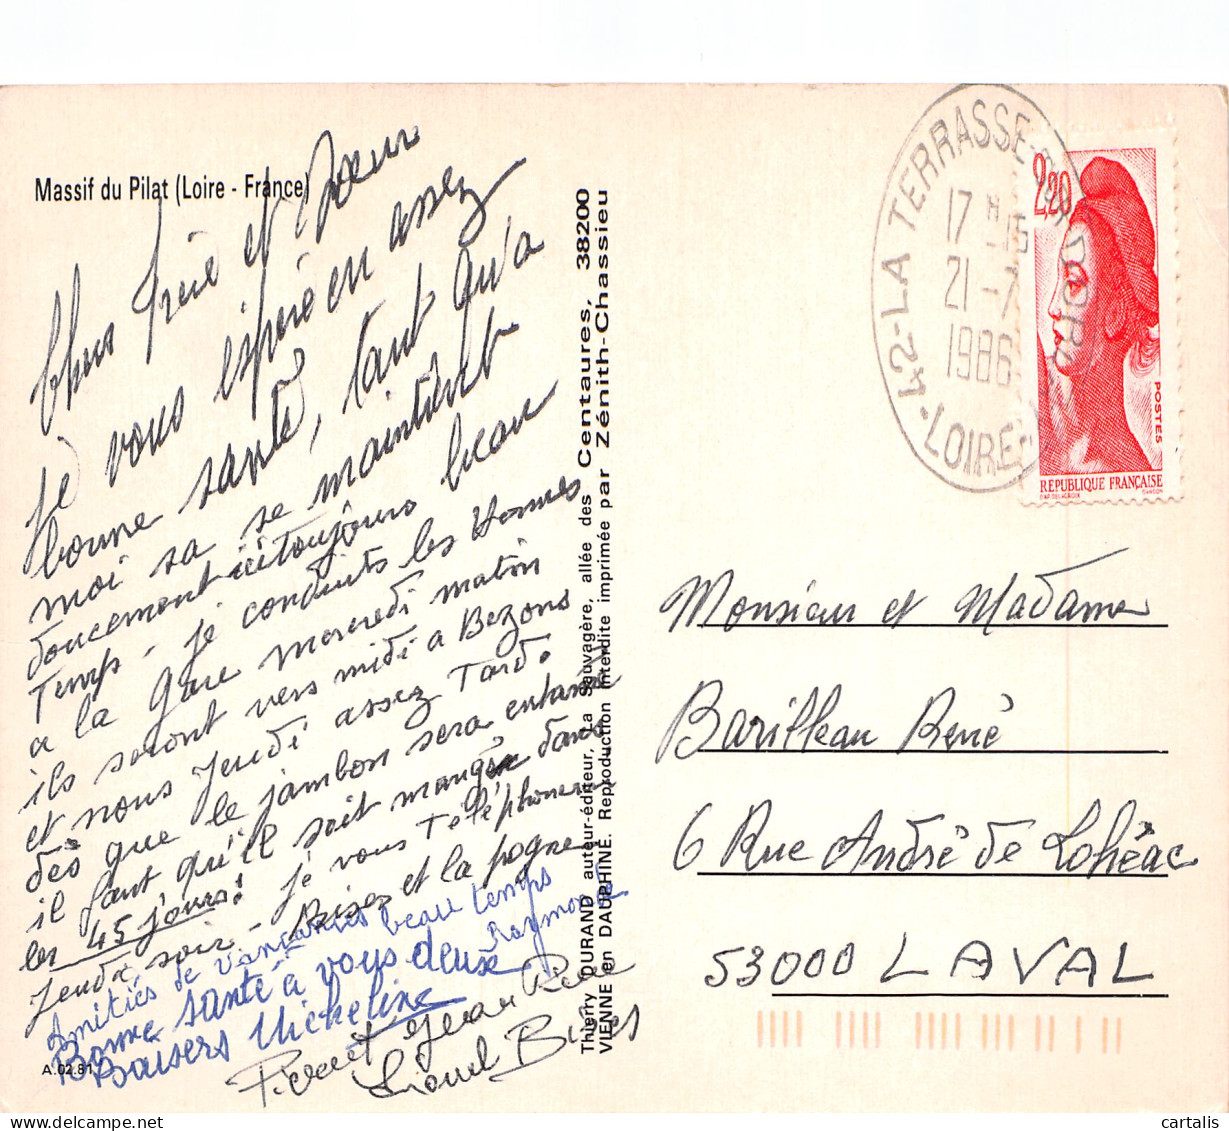 Massif du Pilat (Loire - France)
Chers Frère et Soeur
je vous espère en assez
bonne santé, tant qu'a
moi sa se maintient
doucement ici toujours beau
Temps - je conduits les
a la gare mercredi matin
ils seront vers midi a Bezons
et nous jeudi assez Tard.
dès que le jambon sera entamé
il faut qu'il soit mangée dans
les 45 jours! je vous Téléphonerai
Jeudi soir - Bises et la pogne
Amitiés de vancances beau temps
Raymonde
Bonne santé à vous deux
Baisers Micheline
Pierrot Jean Pierre
Lionel Bises
A.02.81
Thierry DURAND auteur-éditeur, La Sauvagère, allée des Centaures, 38200
VIENNE en DAUPHINÉ. Reproduction interdite imprimée par Zénith-Chassieu
42-LA TERRASSE-SUR-DORLAY
LOIRE
17 H 15
21-7
1986
2,20
POSTES
REPUBLIQUE FRANÇAISE
D'AP. DELACROIX GANDON
Monsieur et Madame
Barilleau René
6 Rue André de Lohéac
53000 LAVAL
cartalis